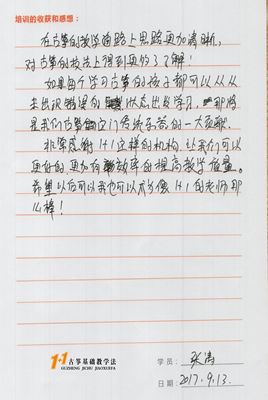 培训的收获和感想：
在古筝的教学道路上思路更加清晰，
对古筝的技法上得到更的了解！
如果每个学习古筝的孩子都可以从从
未出现错误的状态出发学习，那将
是我们古筝这门传统乐器的一大贡献。
非常感谢1+1这样的机构，让我们可以
更好的，更加有效率的提高教学质量。
希望以后可以我也可以成为像1+1的老师那
么棒！
1+1古筝基础教学法
GUZHENG JICHU JIAOXUEFA
学员：张涛
日期：2017.9.13.